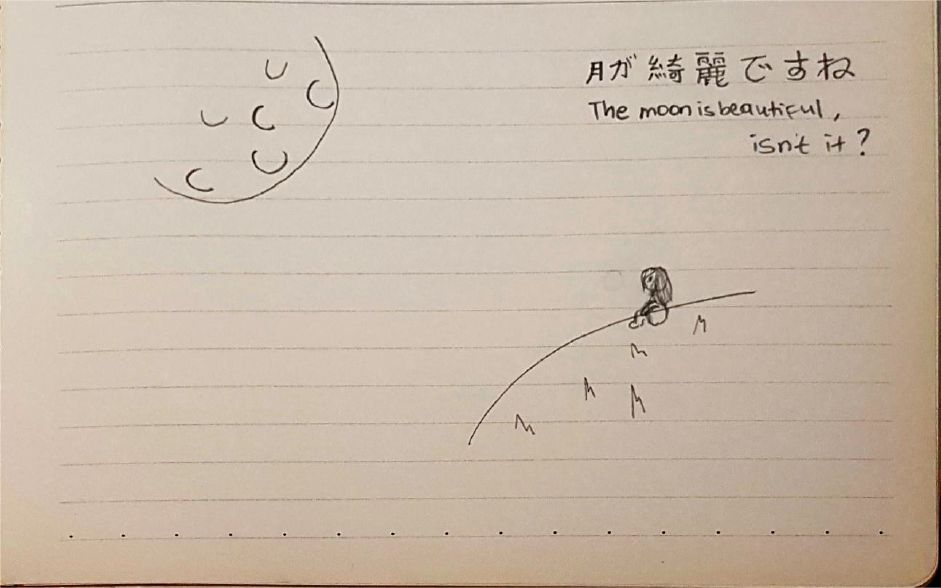 月が綺麗ですね
The moon is beautiful,
isn't it?